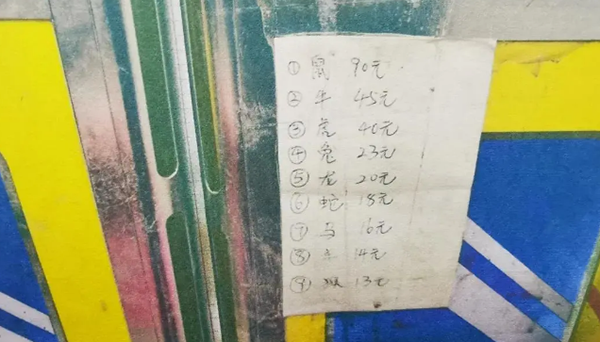 ① 鼠 90元
② 牛 45元
③ 虎 40元
④ 兔 23元
⑤ 龙 20元
⑥ 蛇 18元
⑦ 马 16元
⑧ 14元
⑨ 13元